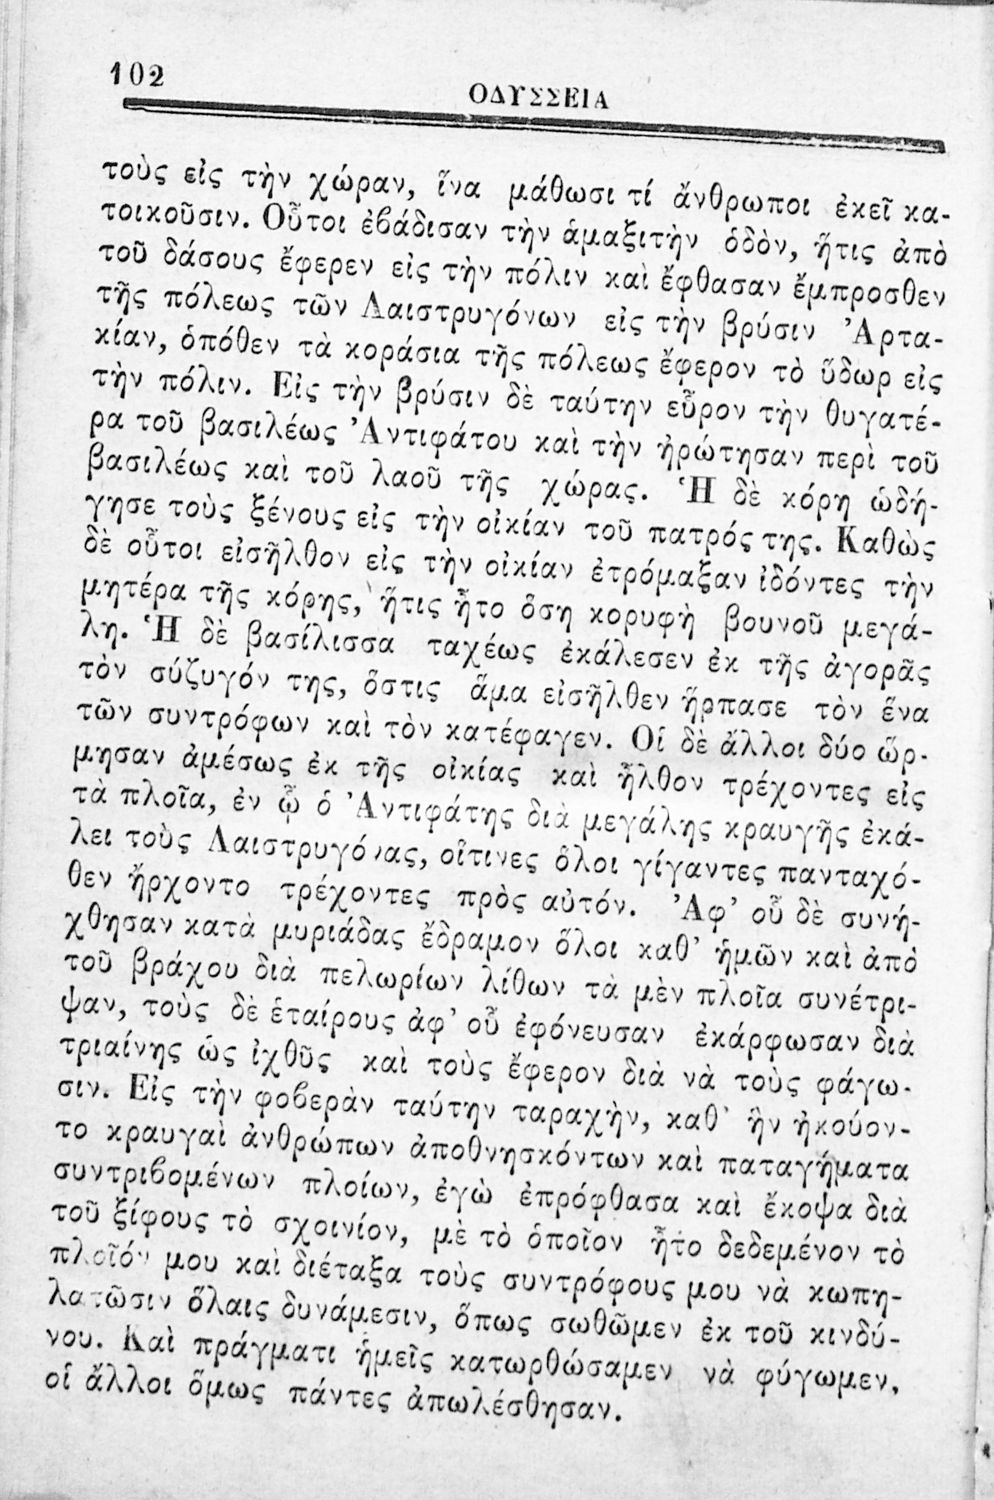 102
ΟΔΥΣΣΕΙΑ
τοὺς εἰς τὴν χώραν, ἵνα μάθωσι τί ἄνθρωποι ἐκεῖ κα-
τοικοῦσιν. Οὗτοι ἐβάδισαν τὴν ἁμαξιτὴν ὁδὸν, ἥτις ἀπὸ
τοῦ δάσους ἔφερεν εἰς τὴν πόλιν καὶ ἔφθασαν ἔμπροσθεν
τῆς πόλεως τῶν Λαιστρυγόνων εἰς τὴν βρύσιν Ἀρτα-
κίαν, ὁπόθεν τὰ κοράσια τῆς πόλεως ἔφερον τὸ ὕδωρ εἰς
τὴν πόλιν. Εἰς τὴν βρύσιν δὲ ταύτην εὗρον τὴν θυγατέ-
ρα τοῦ βασιλέως Ἀντιφάτου καὶ τὴν ἠρώτησαν περὶ τοῦ
βασιλέως καὶ τοῦ λαοῦ τῆς χώρας. Ἡ δὲ κόρη ὡδή-
γησε τοὺς ξένους εἰς τὴν οἰκίαν τοῦ πατρός της. Καθὼς
δὲ οὗτοι εἰσῆλθον εἰς τὴν οἰκίαν ἐτρόμαξαν ἰδόντες τὴν
μητέρα τῆς κόρης, ἥτις ἦτο ὅση κορυφὴ βουνοῦ μεγά-
λη. Ἡ δὲ βασίλισσα ταχέως ἐκάλεσεν ἐκ τῆς ἀγορᾶς
τὸν σύζυγόν της, ὅστις ἅμα εἰσῆλθεν ἥρπασε τὸν ἕνα
τῶν συντρόφων καὶ τὸν κατέφαγεν. Οἱ δὲ ἄλλοι δύο ὥρ-
μησαν ἀμέσως ἐκ τῆς οἰκίας καὶ ἦλθον τρέχοντες εἰς
τὰ πλοῖα, ἐν ᾧ ὁ Ἀντιφάτης διὰ μεγάλης κραυγῆς ἐκά-
λει τοὺς Λαιστρυγόνας, οἵτινες ὅλοι γίγαντες πανταχό-
θεν ἤρχοντο τρέχοντες πρὸς αὐτόν. Ἀφ' οὗ δὲ συνή-
χθησαν κατὰ μυριάδας ἔδραμον ὅλοι καθ' ἡμῶν καὶ ἀπὸ
τοῦ βράχου διὰ πελωρίων λίθων τὰ μὲν πλοῖα συνέτρι-
ψαν, τοὺς δὲ ἑταίρους ἀφ' οὗ ἐφόνευσαν ἐκάρφωσαν διὰ
τριαίνης ὡς ἰχθῦς καὶ τοὺς ἔφερον διὰ νὰ τοὺς φάγω-
σιν. Εἰς τὴν φοβερὰν ταύτην ταραχὴν, καθ' ἣν ἠκούον-
το κραυγαὶ ἀνθρώπων ἀποθνησκόντων καὶ παταγήματα
συντριβομένων πλοίων, ἐγὼ ἐπρόφθασα καὶ ἔκοψα διὰ
τοῦ ξίφους τὸ σχοινίον, μὲ τὸ ὁποῖον ἦτο δεδεμένον τὸ
πλοῖόν μου καὶ διέταξα τοὺς συντρόφους μου νὰ κωπη-
λατῶσιν ὅλαις δυνάμεσιν, ὅπως σωθῶμεν ἐκ τοῦ κινδύ-
νου. Καὶ πράγματι ἡμεῖς κατωρθώσαμεν νὰ φύγωμεν,
οἱ ἄλλοι ὅμως πάντες ἀπωλέσθησαν.